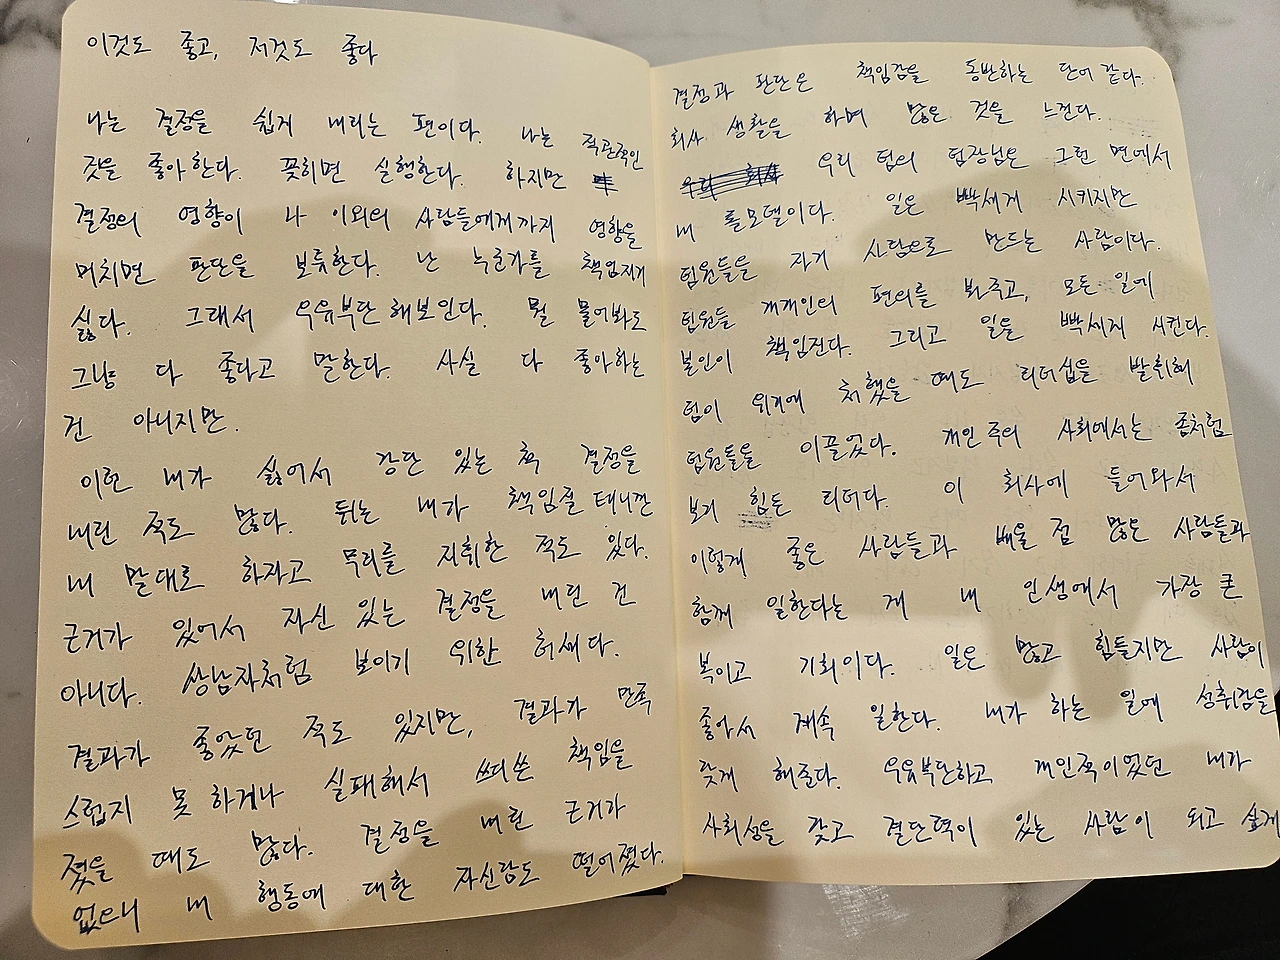 이것도 좋고, 저것도 좋다
나는 결정을 쉽게 내리는 편이다. 나는 직관적인
것을 좋아한다. 꽂히면 실행한다. 하지만
결정의 영향이 나 이외의 사람들에게까지 영향을
미치면 판단을 보류한다. 난 누군가를 책임지기
싫다. 그래서 우유부단해보인다. 뭘 물어봐도
그냥 다 좋다고 말한다. 사실 다 좋아하는
건 아니지만.
이런 내가 싫어서 강단 있는 척 결정을
내린 적도 많다. 뒤는 내가 책임질테니깐
내 말대로 하자고 무리를 지휘한 적도 있다.
근거가 있어서 자신 있는 결정을 내린 건
아니다. 상남자처럼 보이기 위한 허세다.
결과가 좋았던 적도 있지만, 결과가 만족
스럽지 못하거나 실패해서 쓰디쓴 책임을
졌을 때도 많다. 결정을 내린 근거가
없으니 내 행동에 대한 자신감도 떨어졌다.
결정과 판단은 책임감을 동반하는 단어 같다.
회사 생활을 하며 많은 것을 느낀다.
우리 팀의 팀장님은 그런 면에서
내 롤모델이다. 일은 빡세게 시키지만
팀원들을 자기 사람으로 만드는 사람이다.
팀원들 개개인의 편의를 봐주고, 모든 일에
본인이 책임진다. 그리고 일을 빡세게 시킨다.
팀이 위기에 처했을 때도 리더십을 발휘해
팀원들을 이끌었다. 개인주의 사회에서는 좀처럼
보기 힘든 리더다. 이 회사에 들어와서
이렇게 좋은 사람들과 배울 점 많은 사람들과
함께 일한다는 게 내 인생에서 가장 큰
복이고 기회이다. 일은 많고 힘들지만 사람이
좋아서 계속 일한다. 내가 하는 일에 성취감을
갖게 해준다. 우유부단하고 개인적이었던 내가
사회성을 갖고 결단력이 있는 사람이 되고 싶게